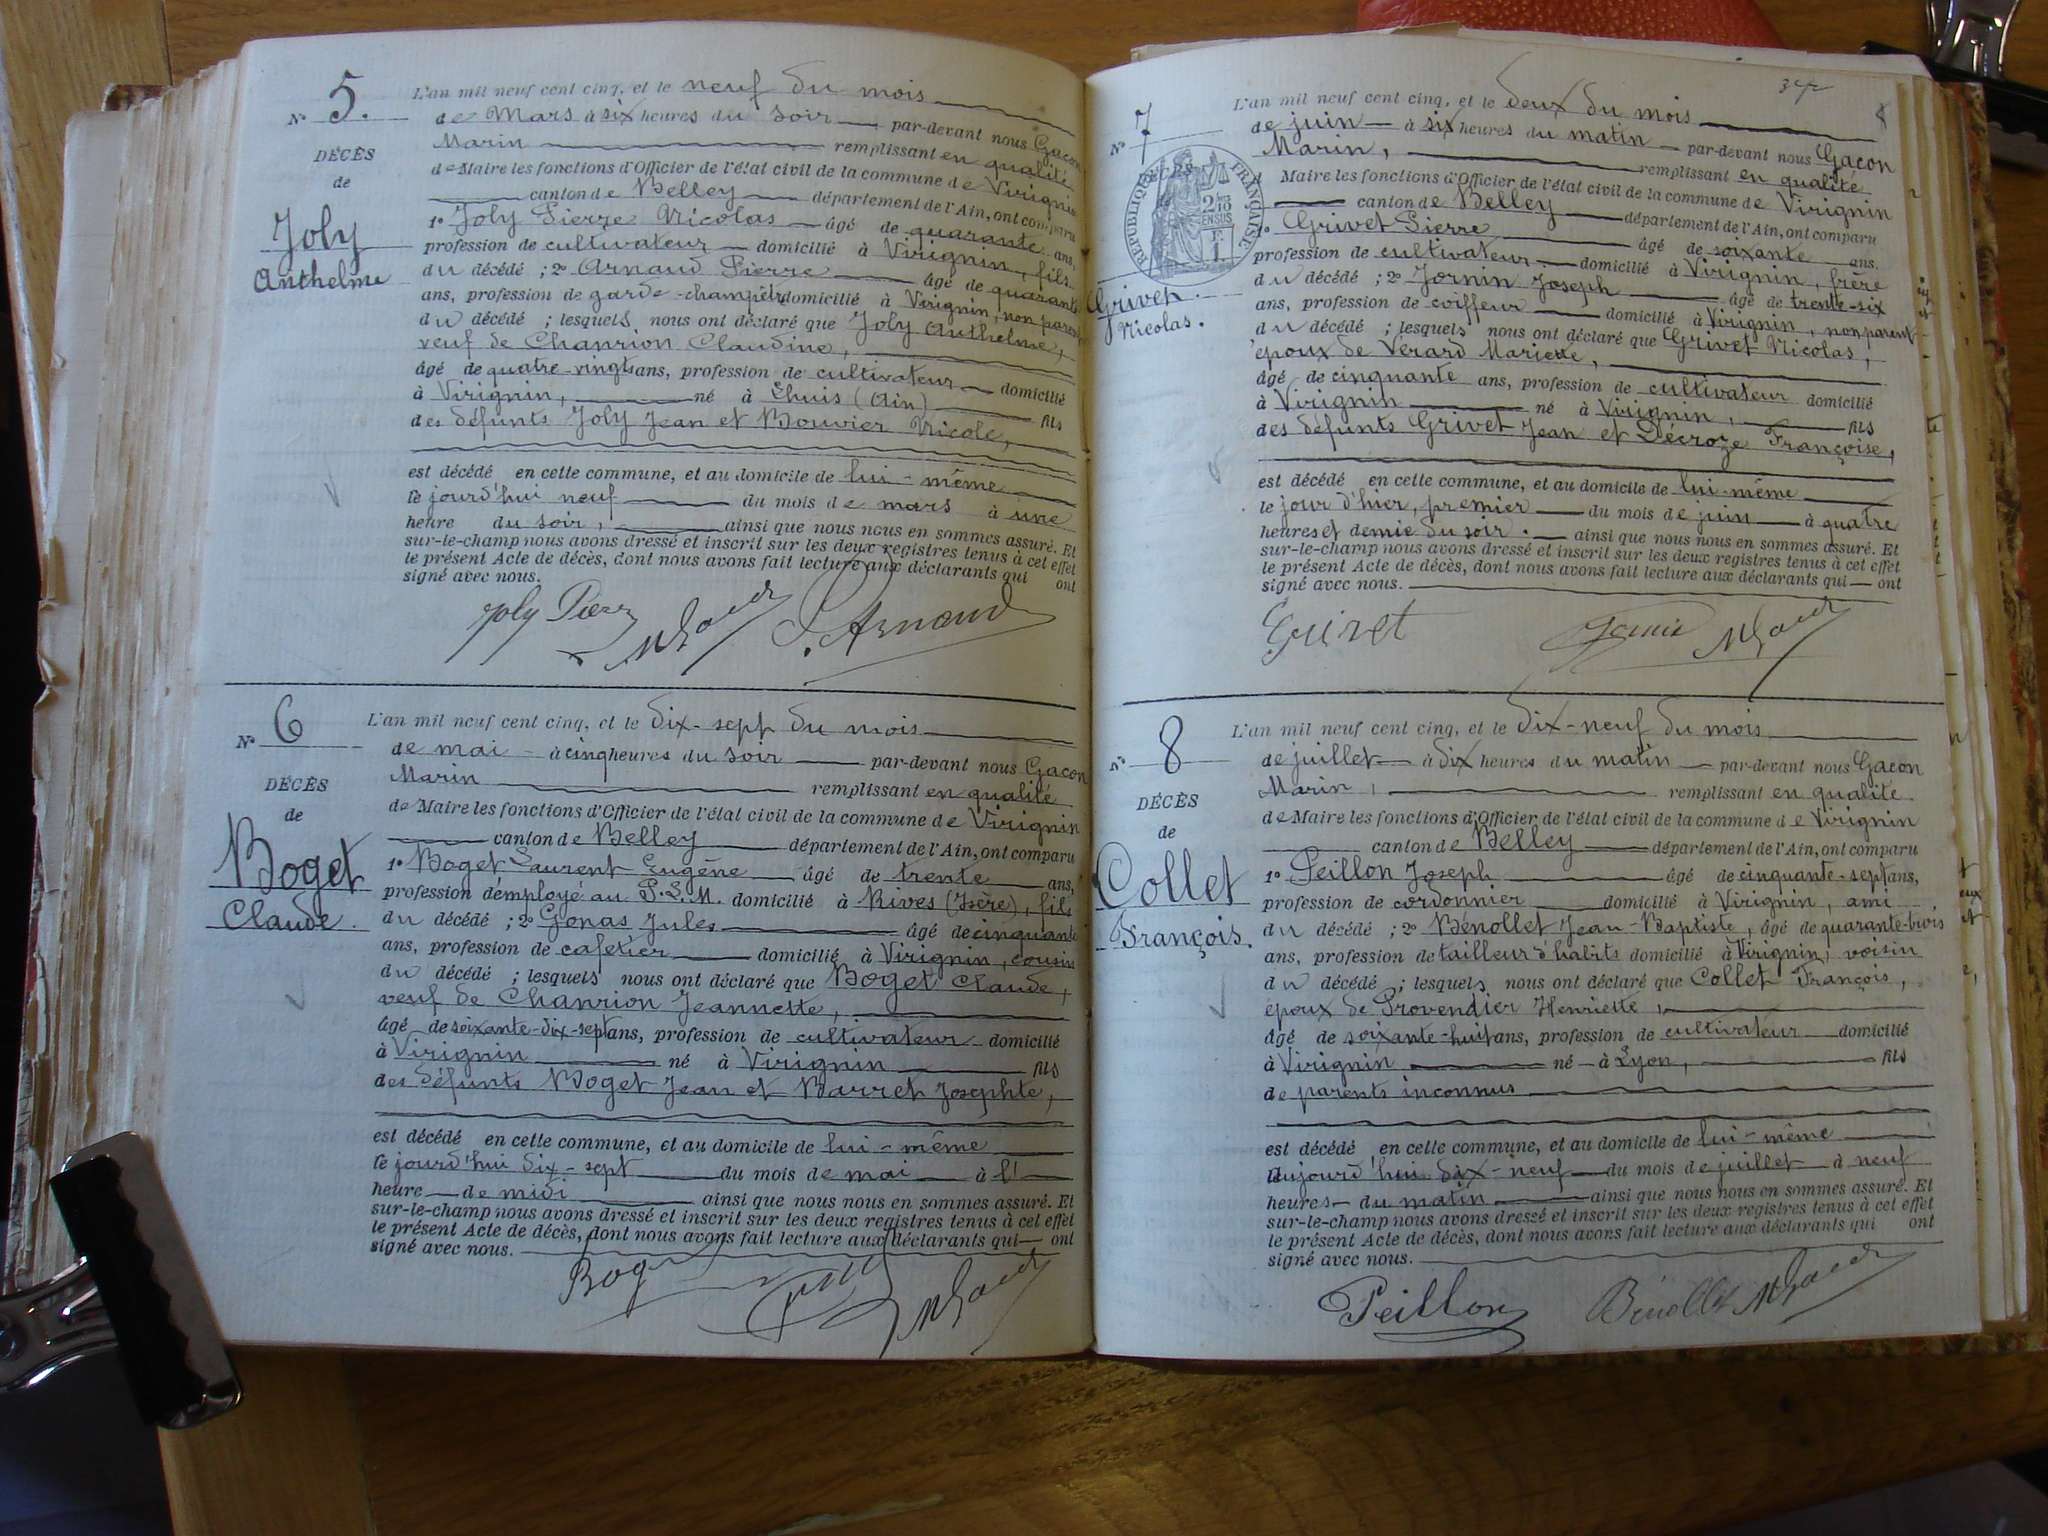 N° 5.
DÉCÈS
de
Joly
Anthelme
L'an mil neuf cent cinq, et le neuf du mois
de Mars à six heures du soir par-devant nous Gacon
Marin remplissant en qualité
de Maire les fonctions d'Officier de l'état civil de la commune de Virignin
canton de Belley département de l'Ain, ont comparu
1° Joly Pierre Nicolas âgé de quarante ans,
profession de cultivateur domicilié à Virignin, fils
du décédé ; 2° Arnaud Pierre âgé de quarante
ans, profession de garde-champêtre domicilié à Virignin, non parent
du décédé ; lesquels nous ont déclaré que Joly Anthelme,
veuf de Chanrion Claudine,
âgé de quatre-vingts ans, profession de cultivateur domicilié
à Virignin, né à Lhuis (Ain) fils
des défunts Joly Jean et Bouvier Nicole,
est décédé en cette commune, et au domicile de lui-même
le jourd'hui neuf du mois de mars à une
heure du soir, ainsi que nous nous en sommes assuré. Et
sur-le-champ nous avons dressé et inscrit sur les deux registres tenus à cet effet
le présent Acte de décès, dont nous avons fait lecture aux déclarants qui ont
signé avec nous.
Joly Pierre MGacon P. Arnaud
N° 6
DÉCÈS
de
Boget
Claude.
L'an mil neuf cent cinq, et le dix-sept du mois
de mai à cinq heures du soir par-devant nous Gacon
Marin remplissant en qualité
de Maire les fonctions d'Officier de l'état civil de la commune de Virignin
canton de Belley département de l'Ain, ont comparu
1° Boget Laurent Eugène âgé de trente ans,
profession d'employé au P.L.M. domicilié à Rives (Isère), fils
du décédé ; 2° Gonas Jules âgé de cinquante
ans, profession de cafetier domicilié à Virignin, cousin
du décédé ; lesquels nous ont déclaré que Boget Claude,
veuf de Chanrion Jeannette,
âgé de soixante-dix-sept ans, profession de cultivateur domicilié
à Virignin né à Virignin fils
des défunts Boget Jean et Barret Josephte,
est décédé en cette commune, et au domicile de lui-même
le jourd'hui dix-sept du mois de mai à l'
heure de midi ainsi que nous nous en sommes assuré. Et
sur-le-champ nous avons dressé et inscrit sur les deux registres tenus à cet effet
le présent Acte de décès, dont nous avons fait lecture aux déclarants qui ont
signé avec nous.
Boget MGacon
N° 7
RÉPUBLIQUE FRANÇAISE
2/10 EN SUS
Grivet
Nicolas.
L'an mil neuf cent cinq, et le deux du mois
de juin à six heures du matin par-devant nous Gacon
Marin, remplissant en qualité
Maire les fonctions d'Officier de l'état civil de la commune de Virignin
canton de Belley département de l'Ain, ont comparu
1° Grivet Pierre âgé de soixante ans.
profession de cultivateur domicilié à Virignin, frère
du décédé ; 2° Jornin Joseph âgé de trente-six
ans, profession de coiffeur domicilié à Virignin, non parent
du décédé ; lesquels nous ont déclaré que Grivet Nicolas,
époux de Verard Mariette,
âgé de cinquante ans, profession de cultivateur domicilié
à Virignin né à Virignin, fils
des défunts Grivet Jean et Décroze Françoise,
est décédé en cette commune, et au domicile de lui-même
le jour d'hier, premier du mois de juin à quatre
heures et demie du soir. ainsi que nous nous en sommes assuré. Et
sur-le-champ nous avons dressé et inscrit sur les deux registres tenus à cet effet
le présent Acte de décès, dont nous avons fait lecture aux déclarants qui ont
signé avec nous.
Grivet MGacon
N° 8
DÉCÈS
de
Collet
François.
L'an mil neuf cent cinq, et le dix-neuf du mois
de juillet à dix heures du matin par-devant nous Gacon
Marin, remplissant en qualité
de Maire les fonctions d'Officier de l'état civil de la commune de Virignin
canton de Belley département de l'Ain, ont comparu
1° Peillon Joseph âgé de cinquante-sept ans,
profession de cordonnier domicilié à Virignin, ami
du décédé ; 2° Bénollet Jean-Baptiste, âgé de quarante-trois
ans, profession de tailleur d'habits domicilié à Virignin, voisin
du décédé ; lesquels nous ont déclaré que Collet François,
époux de Provendier Henriette,
âgé de soixante-huit ans, profession de cultivateur domicilié
à Virignin né à Lyon, fils
de parents inconnus
est décédé en cette commune, et au domicile de lui-même
aujourd'hui dix-neuf du mois de juillet à neuf
heures du matin ainsi que nous nous en sommes assuré. Et
sur-le-champ nous avons dressé et inscrit sur les deux registres tenus à cet effet
le présent Acte de décès, dont nous avons fait lecture aux déclarants qui ont
signé avec nous.
Peillon Bénollet MGacon